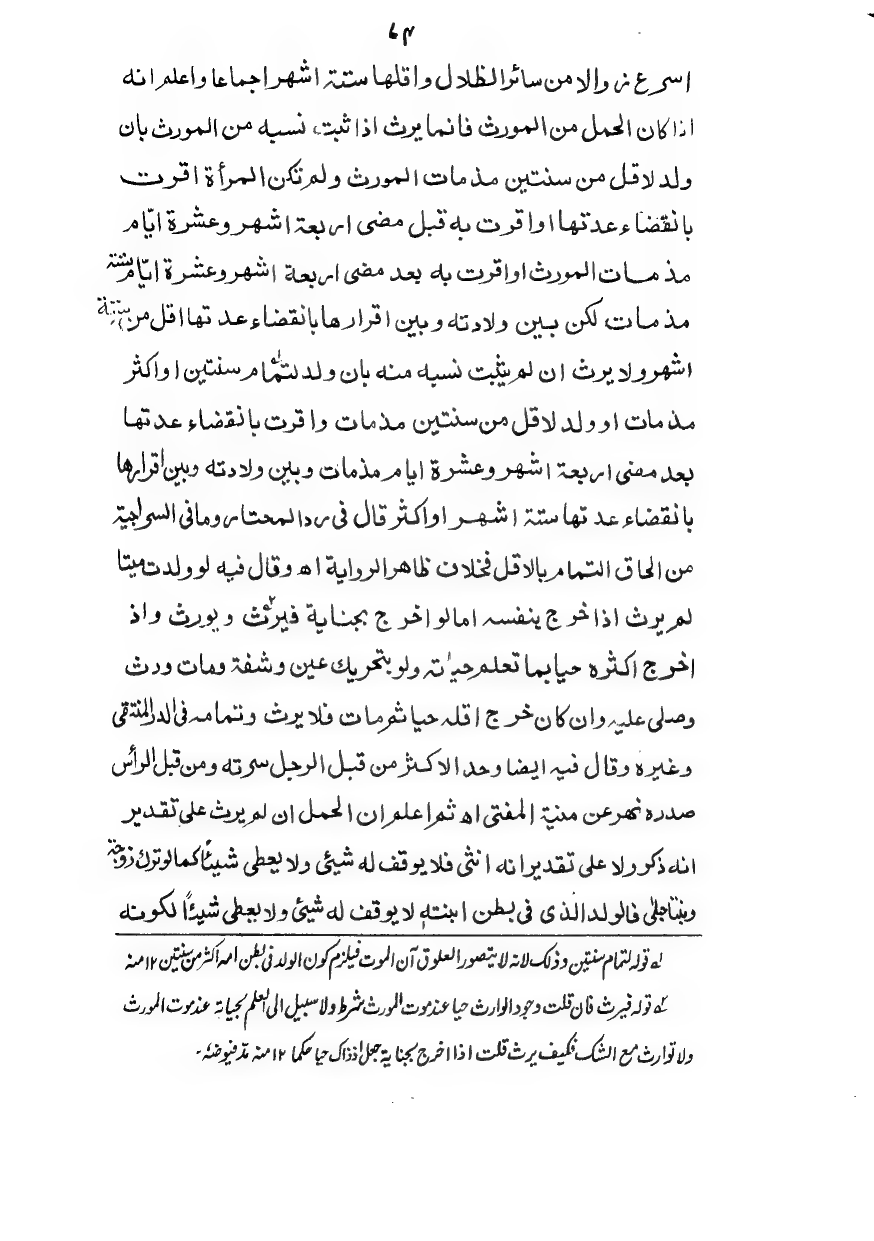 ٦٤
اسرع زوالا من سائر الظلال واقلها ستة اشهر اجماعا واعلم انه
اذا كان الحمل من المورث فانما يرث اذا ثبت نسبه من المورث بان
ولد لاقل من سنتين مذ مات المورث ولم تكن المرأة اقرت
بانقضاء عدتها او اقرت به قبل مضى اربعة اشهر وعشرة ايام
مذ مات المورث او اقرت به بعد مضى اربعة اشهر وعشرة ايام
مذ مات لكن بين ولادته وبين اقرارها بانقضاء عدتها اقل من ستة
اشهر ولا يرث ان لم يثبت نسبه منه بان ولد لتمام سنتين او اكثر
مذ مات او ولد لاقل من سنتين مذ مات واقرت بانقضاء عدتها
بعد مضى اربعة اشهر وعشرة ايام مذ مات وبين ولادته وبين اقرارها
بانقضاء عدتها ستة اشهر او اكثر قال فى رد المحتار وما فى السراجية
من الحاق التمام بالاقل فخلاف ظاهر الرواية اه وقال فيه لو ولدت ميتا
لم يرث اذا خرج بنفسه اما لو اخرج بجناية فيرث ويورث واذ
اخرج اكثره حيا بما تعلم حياته ولو بتحريك عين وشفة ومات ورث
وصلى عليه وان كان خرج اقله حيا ثم مات فلا يرث وتمامه فى الدر المنتقى
وغيره وقال فيه ايضا وحد الاكثر من قبل الرجل سرته ومن قبل الرأس
صدره نهر عن منية المفتى اه ثم اعلم ان الحمل ان لم يرث على تقدير
انه ذكر ولا على تقدير انه انثى فلا يوقف له شيئ ولا يعطى شيئا كما لو ترك زوجة
وبنتا حبلى فالولد الذى فى بطن ابنته لا يوقف له شيئ ولا يعطى شيئا لكونه
له قوله لتمام سنتين وذلك لانه لا يتصور العلوق آن الموت فيلزم كون الولد فى بطن امه اكثر من سنتين ١٢ منه
له قوله فيرث فان قلت وجود الوارث حيا عند موت المورث شرط ولا سبيل الى العلم بحياته عند موت المورث
ولا توارث مع الشك فكيف يرث قلت اذا اخرج بجناية جعل اذ ذاك حيا حكما ١٢ منه مد فيوضه ۔